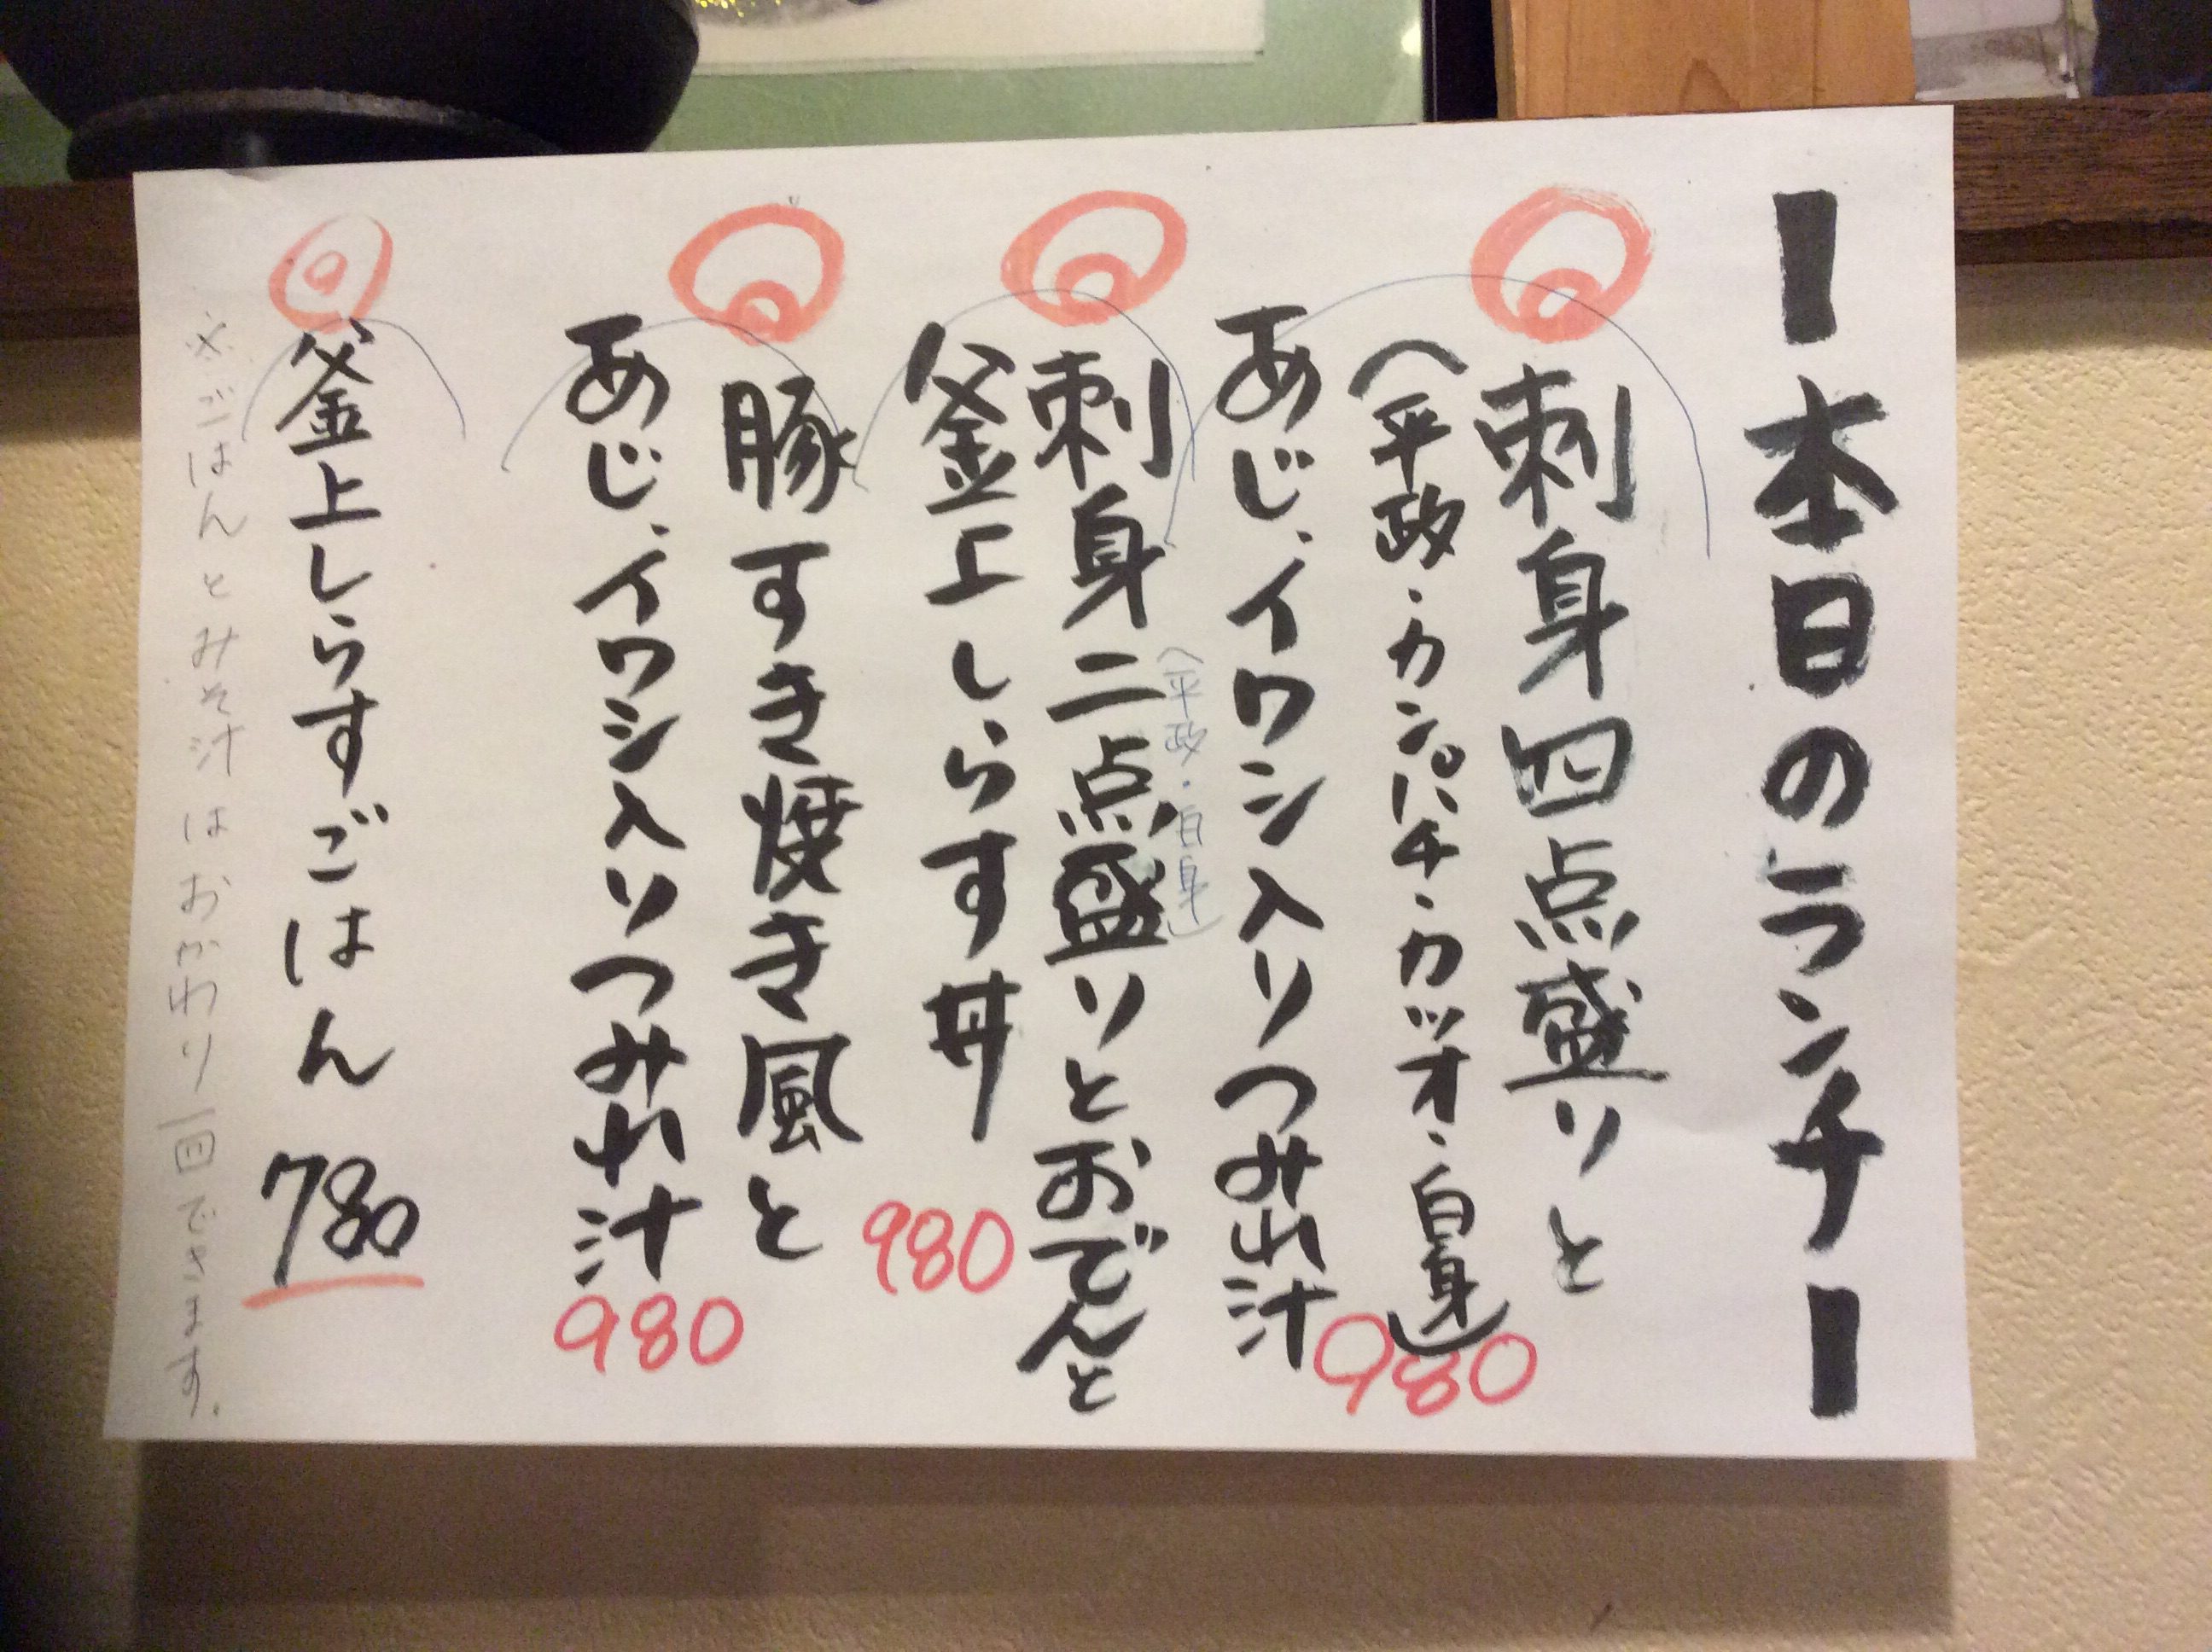 ー本日のランチー
刺身四点盛りと
(平政・カンパチ・カツオ・白身)
あじ、イワシ入りつみれ汁
980
刺身二点盛りとおでんと
(平政・白身)
釜上しらす丼
980
豚すき焼き風と
あじ、イワシ入りつみれ汁
980
釜上しらすごはん 780
※ごはんとみそ汁はおかわり一回できます。